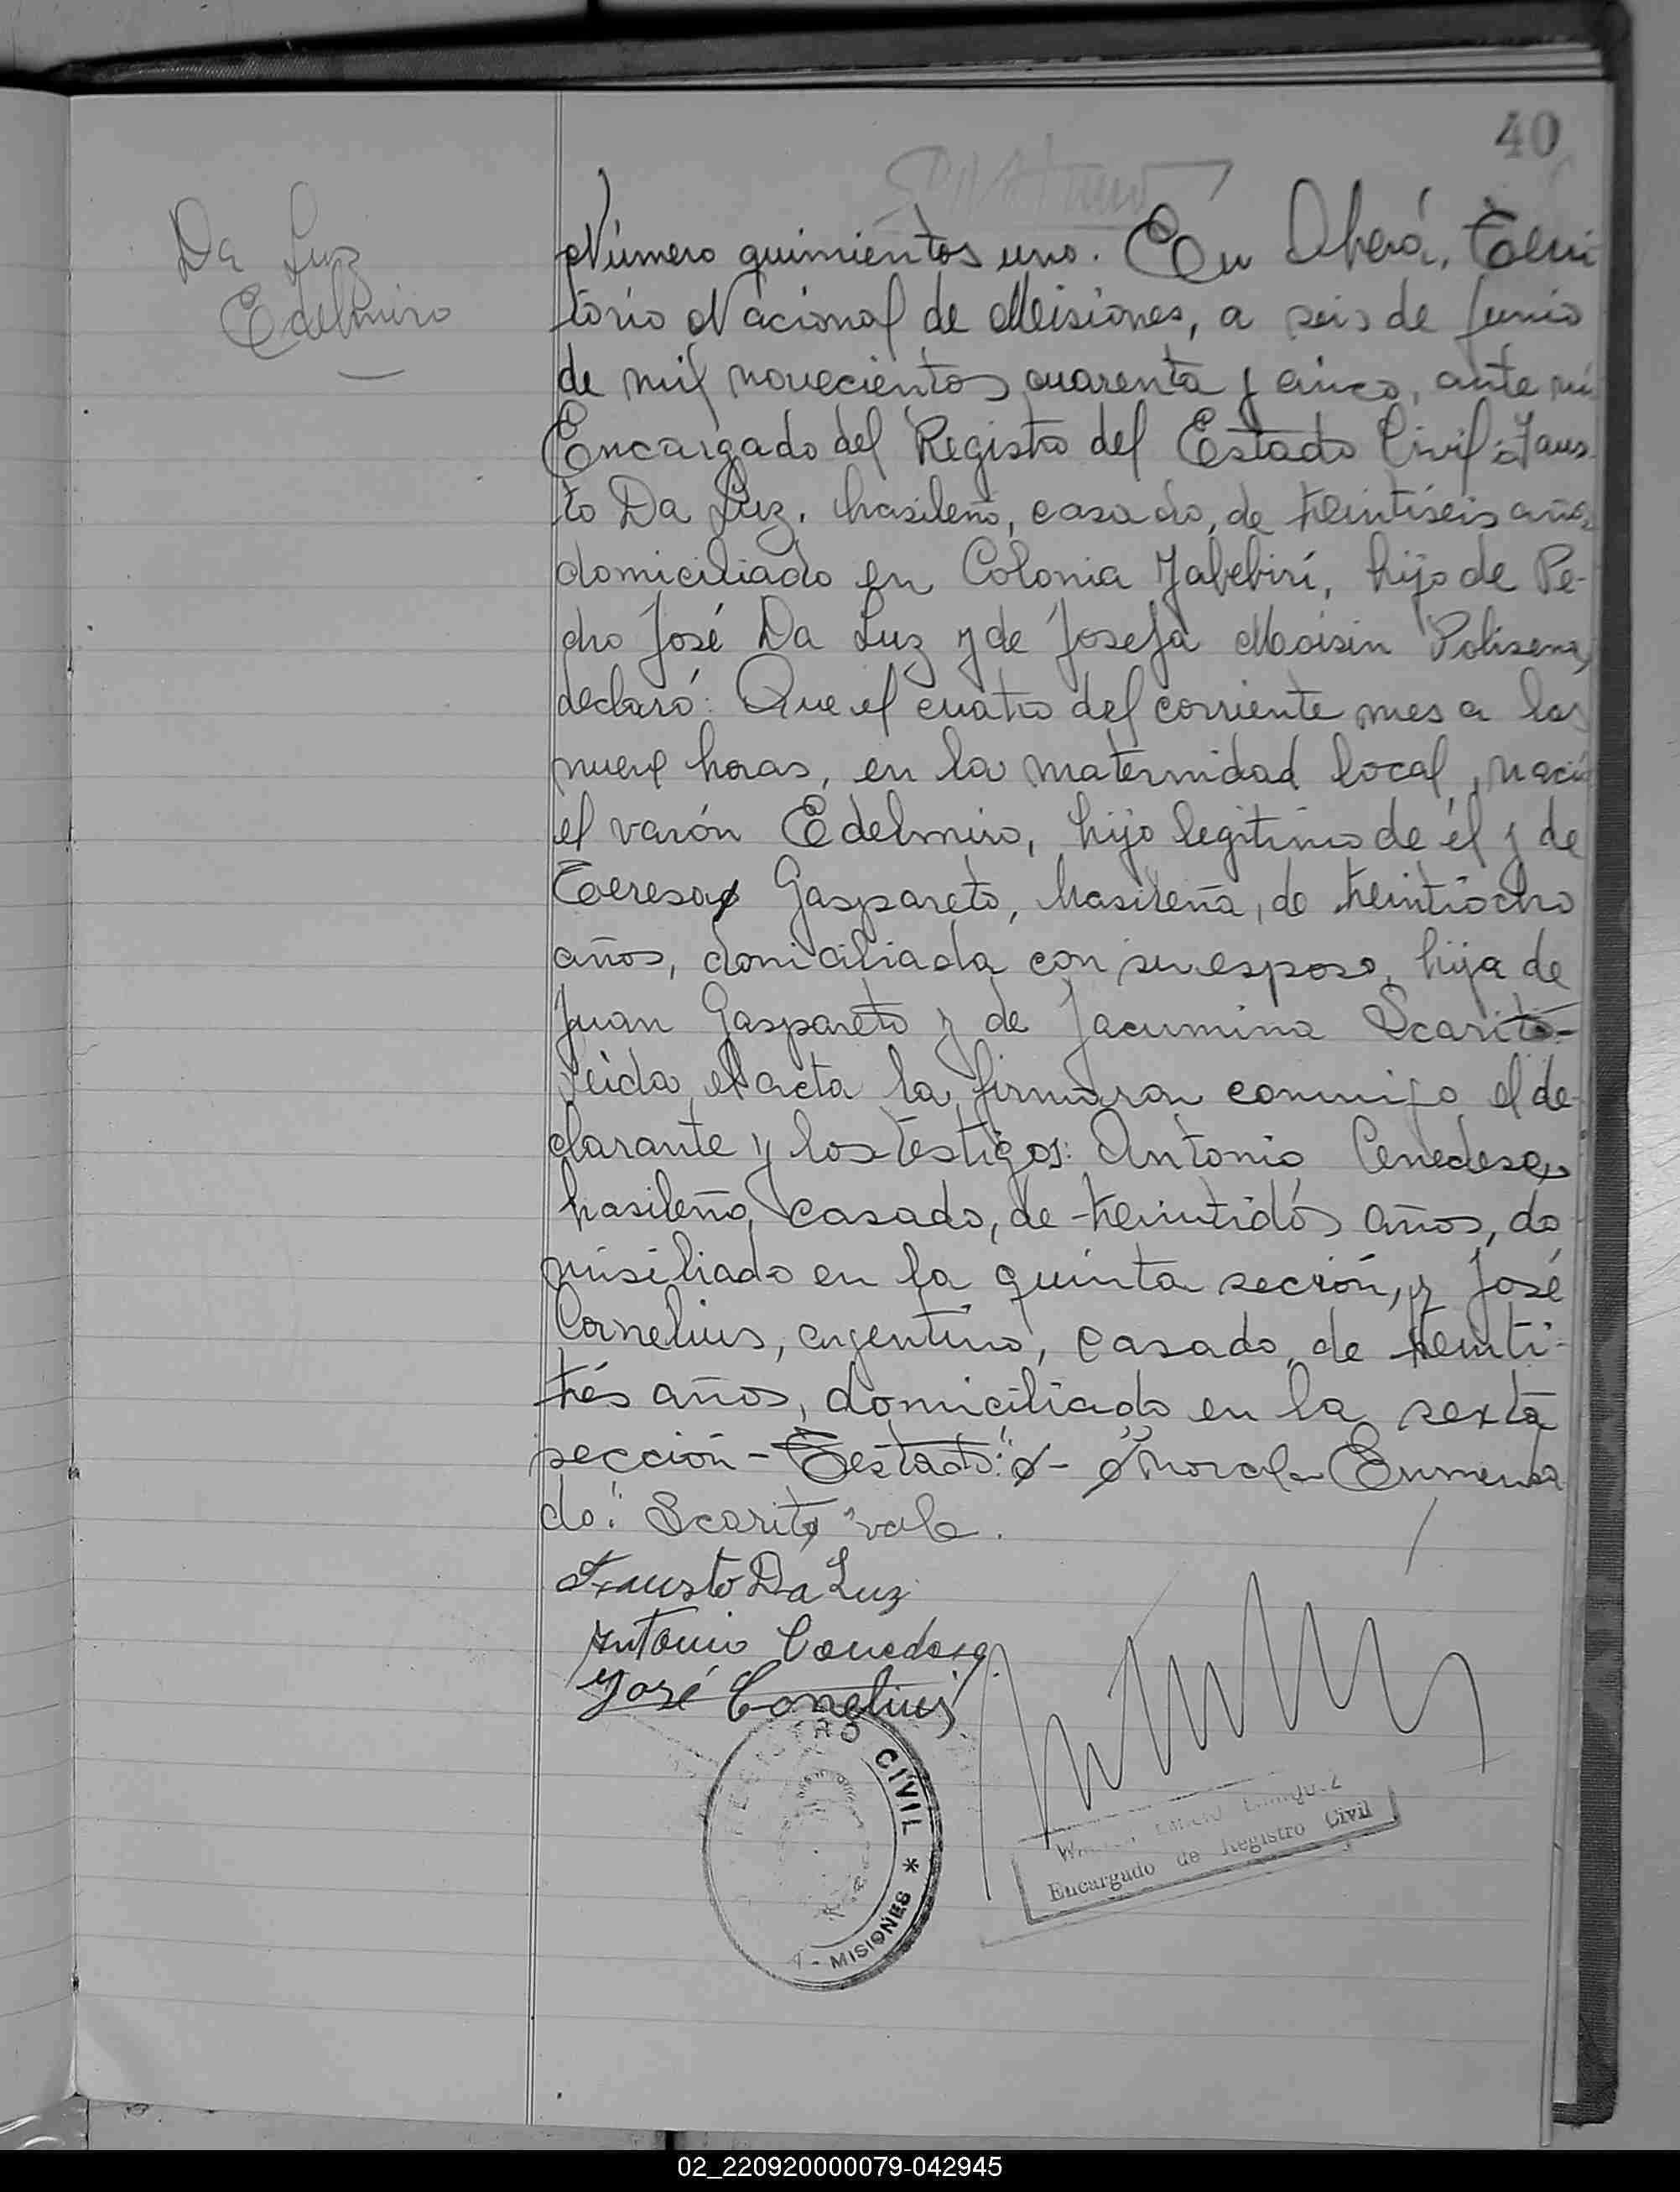 40
Da Luz
Edelmiro
Número quinientos uno. En Oberá, Terri
torio Nacional de Misiones, a seis de Junio
de mil novecientos cuarenta y cinco, ante mí
Encargado del Registro del Estado Civil: Faus
to Da Luz, brasileño, casado, de treintiséis años,
domiciliado en Colonia Yabebirí, hijo de Pe-
dro José Da Luz y de Josefa Moisin Polisena,
declaró: Que el cuatro del corriente mes a las
nueve horas, en la maternidad local, nació
el varón Edelmiro, hijo legítimo de él y de
Teresa Gaspareto, brasileña, de treintiocho
años, domiciliada con su esposo, hija de
Juan Gaspareto y de Jacumina Scarito-
Leída el acta la firmaron conmigo el de-
clarante y los testigos: Antonio Cenedese,
brasileño, casado, de treintidós años, do
misiliado en la quinta sección, y José
Cornelius, argentino, casado, de treinti-
trés años, domiciliado en la sexta
sección - Testado: "o" - o" no vale Enmenda
do: "Scarito" vale.
Fausto Da Luz
Antonio Cenedese
José Cornelius
REGISTRO CIVIL *
- MISIONES
Encargado de Registro Civil
02_220920000079-042945